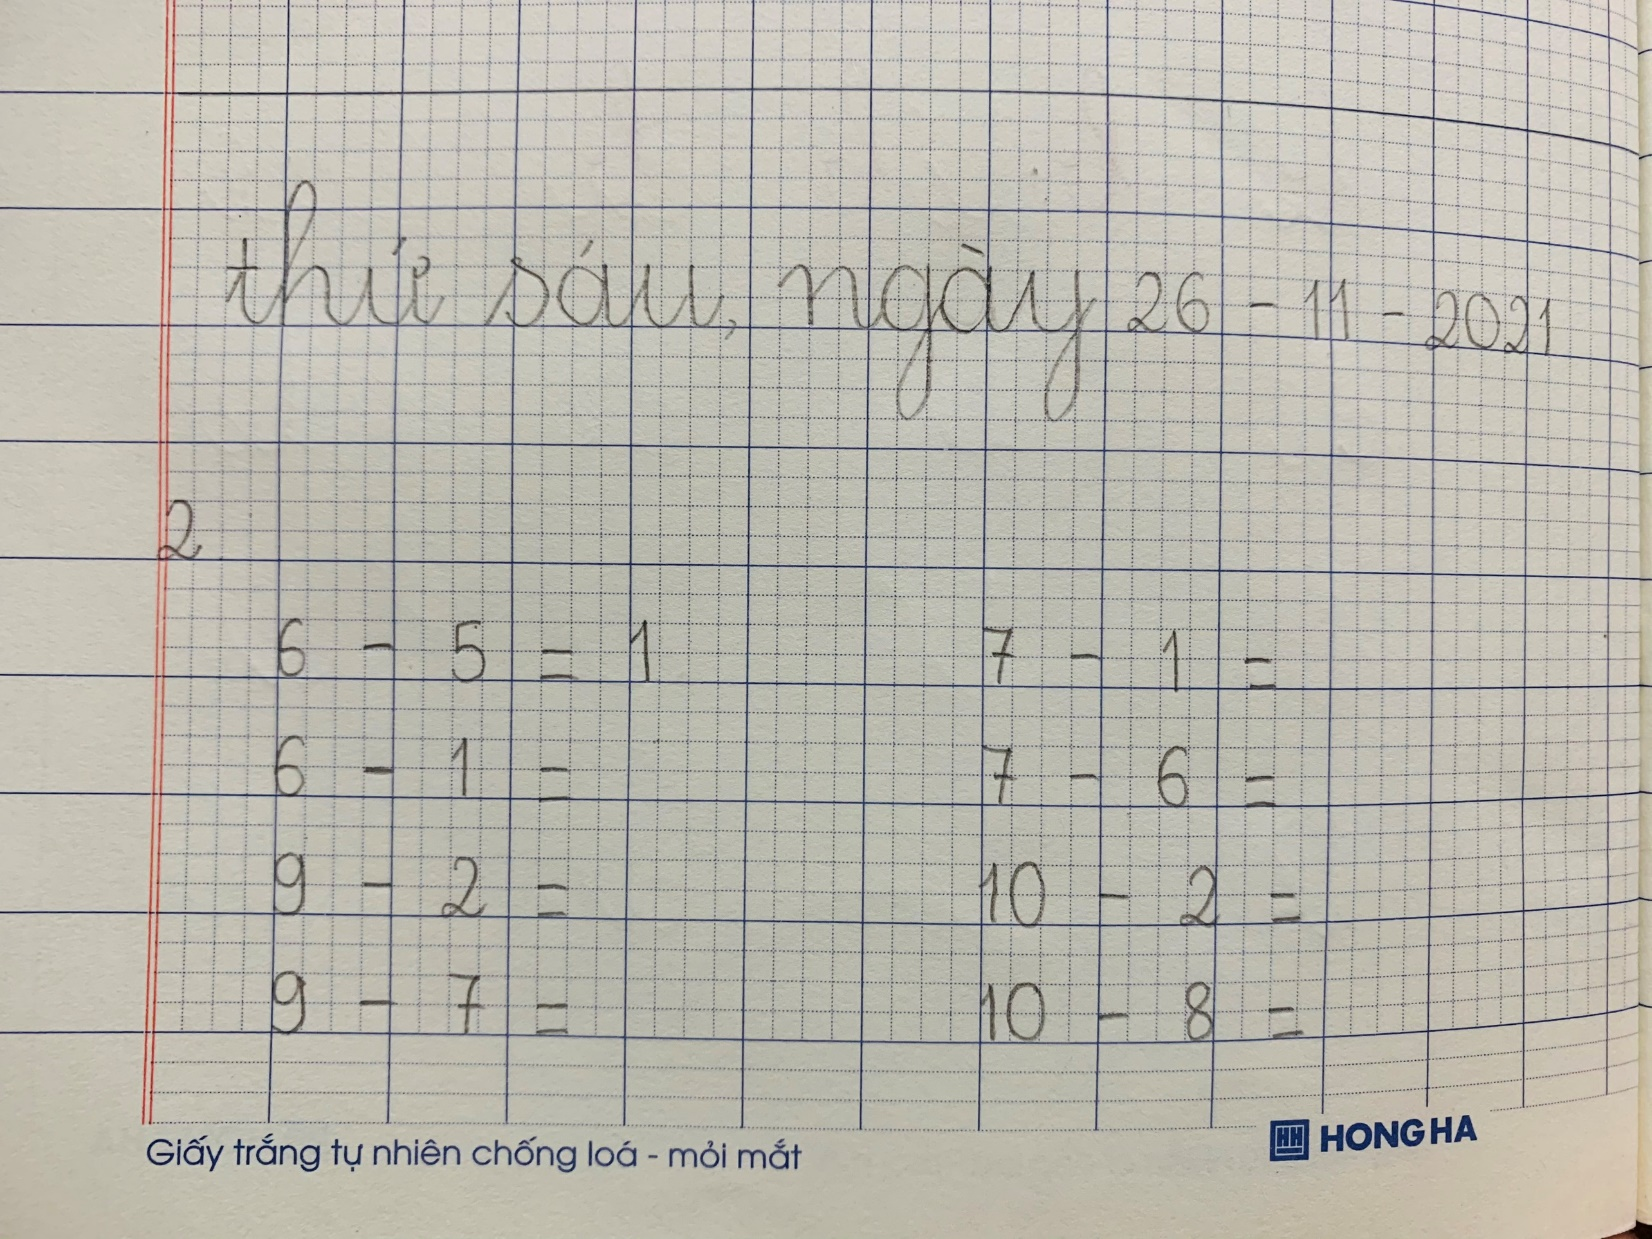 thứ sáu, ngày 26 - 11 - 2021
2
6 - 5 = 1 7 - 1 =
6 - 1 = 7 - 6 =
9 - 2 = 10 - 2 =
9 - 7 = 10 - 8 =
Giấy trắng tự nhiên chống loá - mỏi mắt HH HONG HA